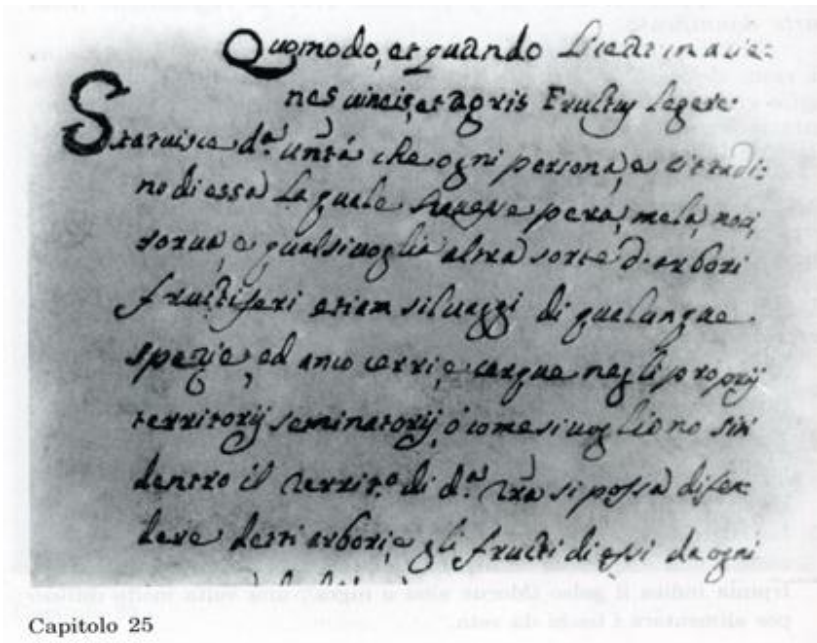 Quomodo, et quando Liceat in aue:
nes uincis, et agris Fructus legere.
Statuisce d.ª untà che ogni persona, e cittadi:
no di essa la quale hauesse pera, mela, noci,
sorua, e qualsiuoglia altra sorte d'arbori
fructiferi etiam siluaggi di qualunque
spezie, ed anco cerri, e cerque negli proprij
territorij seminatorij, ò come si uogliono siti
dentro il territ.º di d.ª trà si possa difen
dere detti arbori, e gli fructi di essi da ogni
Capitolo 25